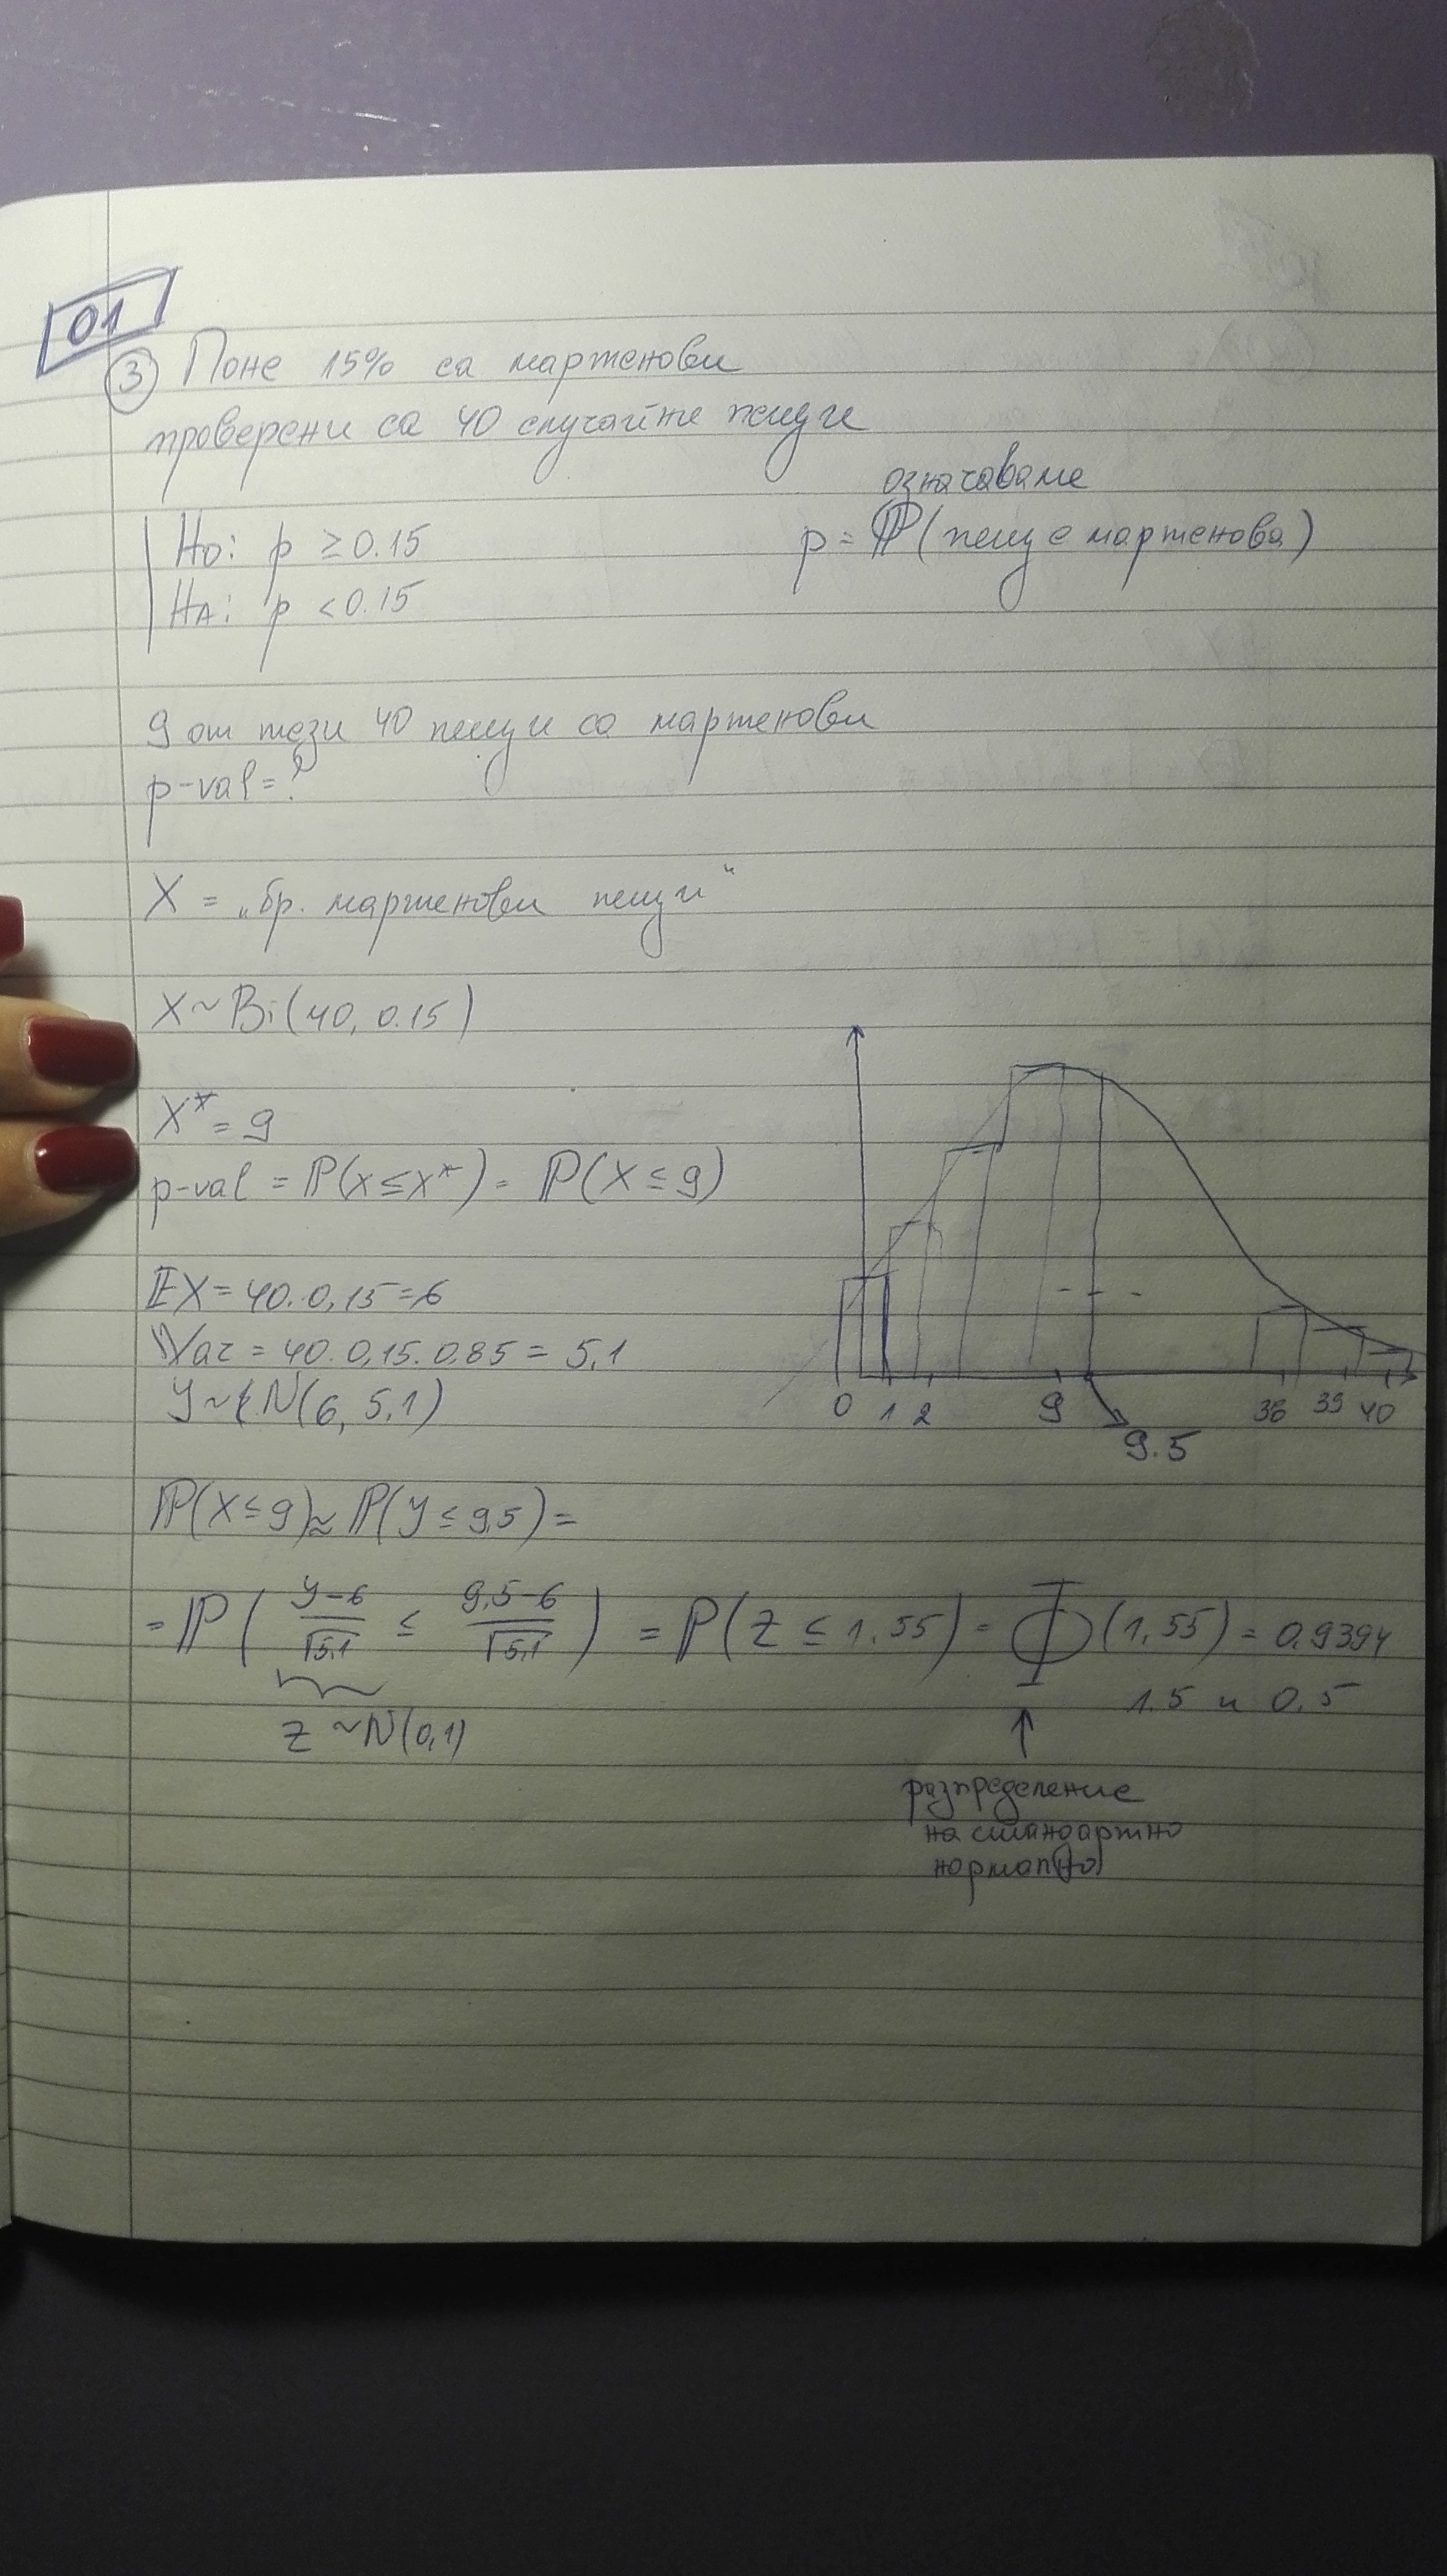 01
③ Поне 15% са мартенови
проверени са 40 случайни пещи
означаваме
H₀: p ≥ 0.15
p = ℙ(пещ е мартенова)
Hᴀ: p < 0.15
9 от тези 40 пещи са мартенови
p-val = ?
X = „бр. мартенови пещи“
X ~ Bi(40, 0.15)
X* = 9
p-val = ℙ(X ≤ X*) = ℙ(X ≤ 9)
𝔼X = 40. 0,15 = 6
Var = 40. 0,15. 0,85 = 5,1
Y ~ N(6, 5,1)
0 1 2 9 38 39 40
9.5
ℙ(X ≤ 9) ≈ ℙ(Y ≤ 9,5) =
= ℙ( (Y-6)/√5,1 ≤ (9,5-6)/√5,1 ) = ℙ(Z ≤ 1,55) = Φ(1,55) = 0,9394
1.5 и 0.5
Z ~ N(0,1)
разпределение
на стандартно
нормално